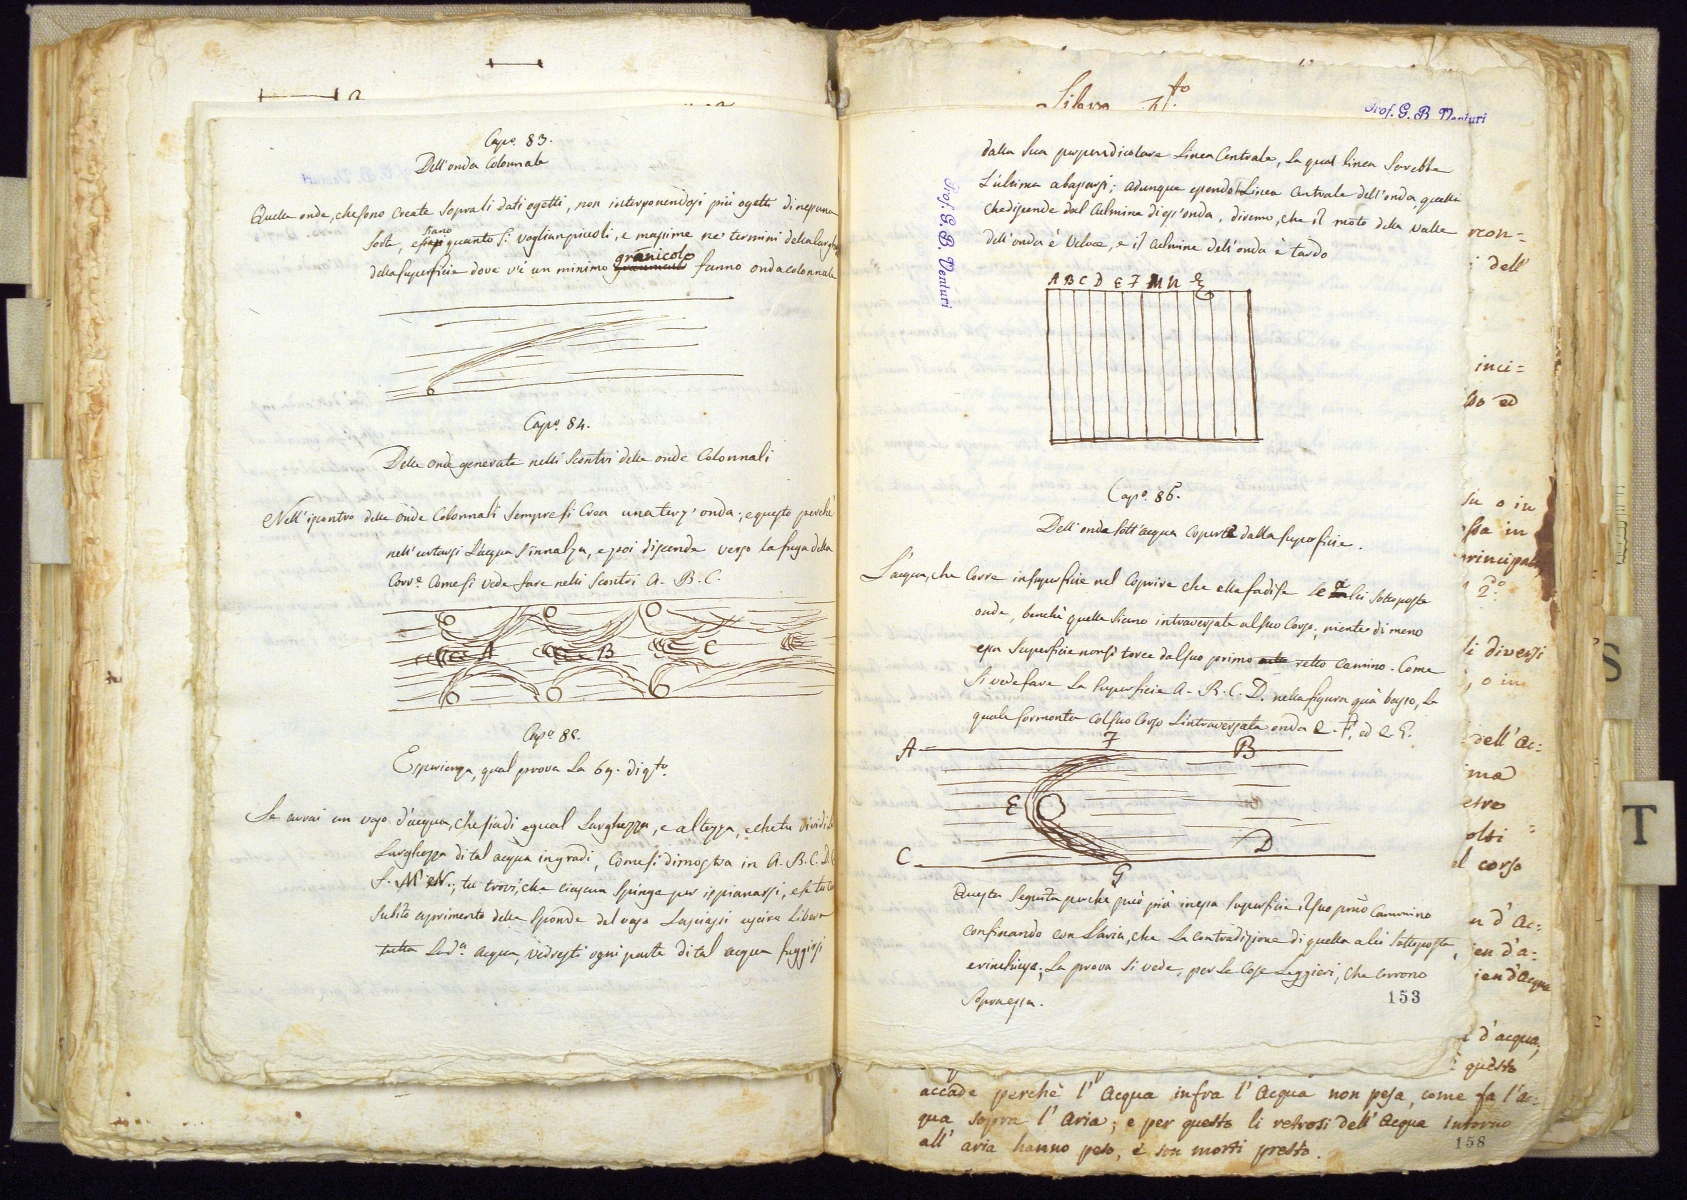 Capo. 83.
Dell'onda Colonnale
Quelle onde, che sono create sopra li dati ogetti, non interponendosi più ogetti di nessuna
sorte, e siano quanto si voglian piccoli, e massime ne' termini della largh
della superficie dove v'è un minimo granicolo fanno onda colonnale
Capo. 84.
Delle onde generate nelli Scontri delle onde Colonnali
Nell'scontro delle onde Colonnali sempre si Crea una terz'onda; e questo perchè
nell'urtarsi l'acqua s'innalza, e poi discende verso la fuga della
Corre. Come si vede fare nelli Scontri A. B. C.
A B C
Capo. 85.
Esperienza, qual prova la 69. di qto.
Se avrai un vaso d'acqua, che sia di egual larghezza, e altezza, e che tu dividi la
larghezza di tal acqua in gradi, Come si dimostra in A. B. C. D.
F. M. N.; tu trovi, che ciascun spinge per ispianarsi, e se tu
subito aprimento della sponda del vaso lasciassi uscire libera
tutta la da. acqua, vedresti ogni parte di tal acqua fuggirsi
Libro 4.to
Prof. G. B. Venturi
Prof. G. B. Venturi
dalla sua perpendicolare Linea Centrale, la qual linea sarebbe
l'ultima abassarsi; adunque essendo Linea Centrale dell'onda quella
che discende dal Culmine di ess'onda, diremo, che il moto della valle
dell'onda è veloce, e il Culmine dell'onda è tardo
A B C D E F M N
Capo. 86.
Dell'onda sott'acqua coperta dalla superficie.
L'acqua, che Corre in superficie nel Coprire che ella fa di se le a lei sottoposte
onde, benchè quelle siano intraversate al suo Corso, niente di meno
essa superficie non si torce dal suo primo retto camino. Come
si vede fare la superficie A. B. C. D. nella figura quà basso, la
quale sormonta col suo Corso l'intraversata onda E. F, ed E G.
A F B
E
D
C G
Questo seguita perche può più in essa superficie il suo primo Cammino
confinando con l'aria, che la contradizione di quella a lei sottoposta
e rinchiusa; La prova si vede, per le Cose leggieri, che corrono
sopra essa.
153
rcon=
dell'
inci=
so ed
su o in
ssa in
principale
2°:
li diversi
, o in
dell'Ac:
ima
etro
olti
l corso
n d'Ac:
ien d'a=
ien d'Acqua
d'acqua;
questo
accade perchè l'Acqua infra l'Acqua non pesa, come fa l'ac=
qua sopra l'Aria; e per questo li retrosi dell'Acqua intorno
all'aria hanno peso, e son morti presto.
158
S
T